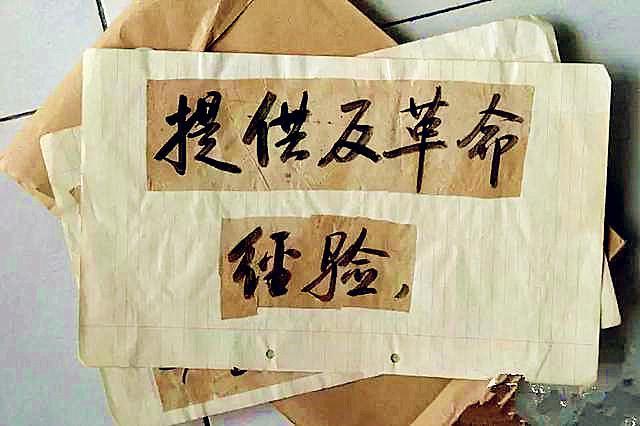 提供反革命
经验、